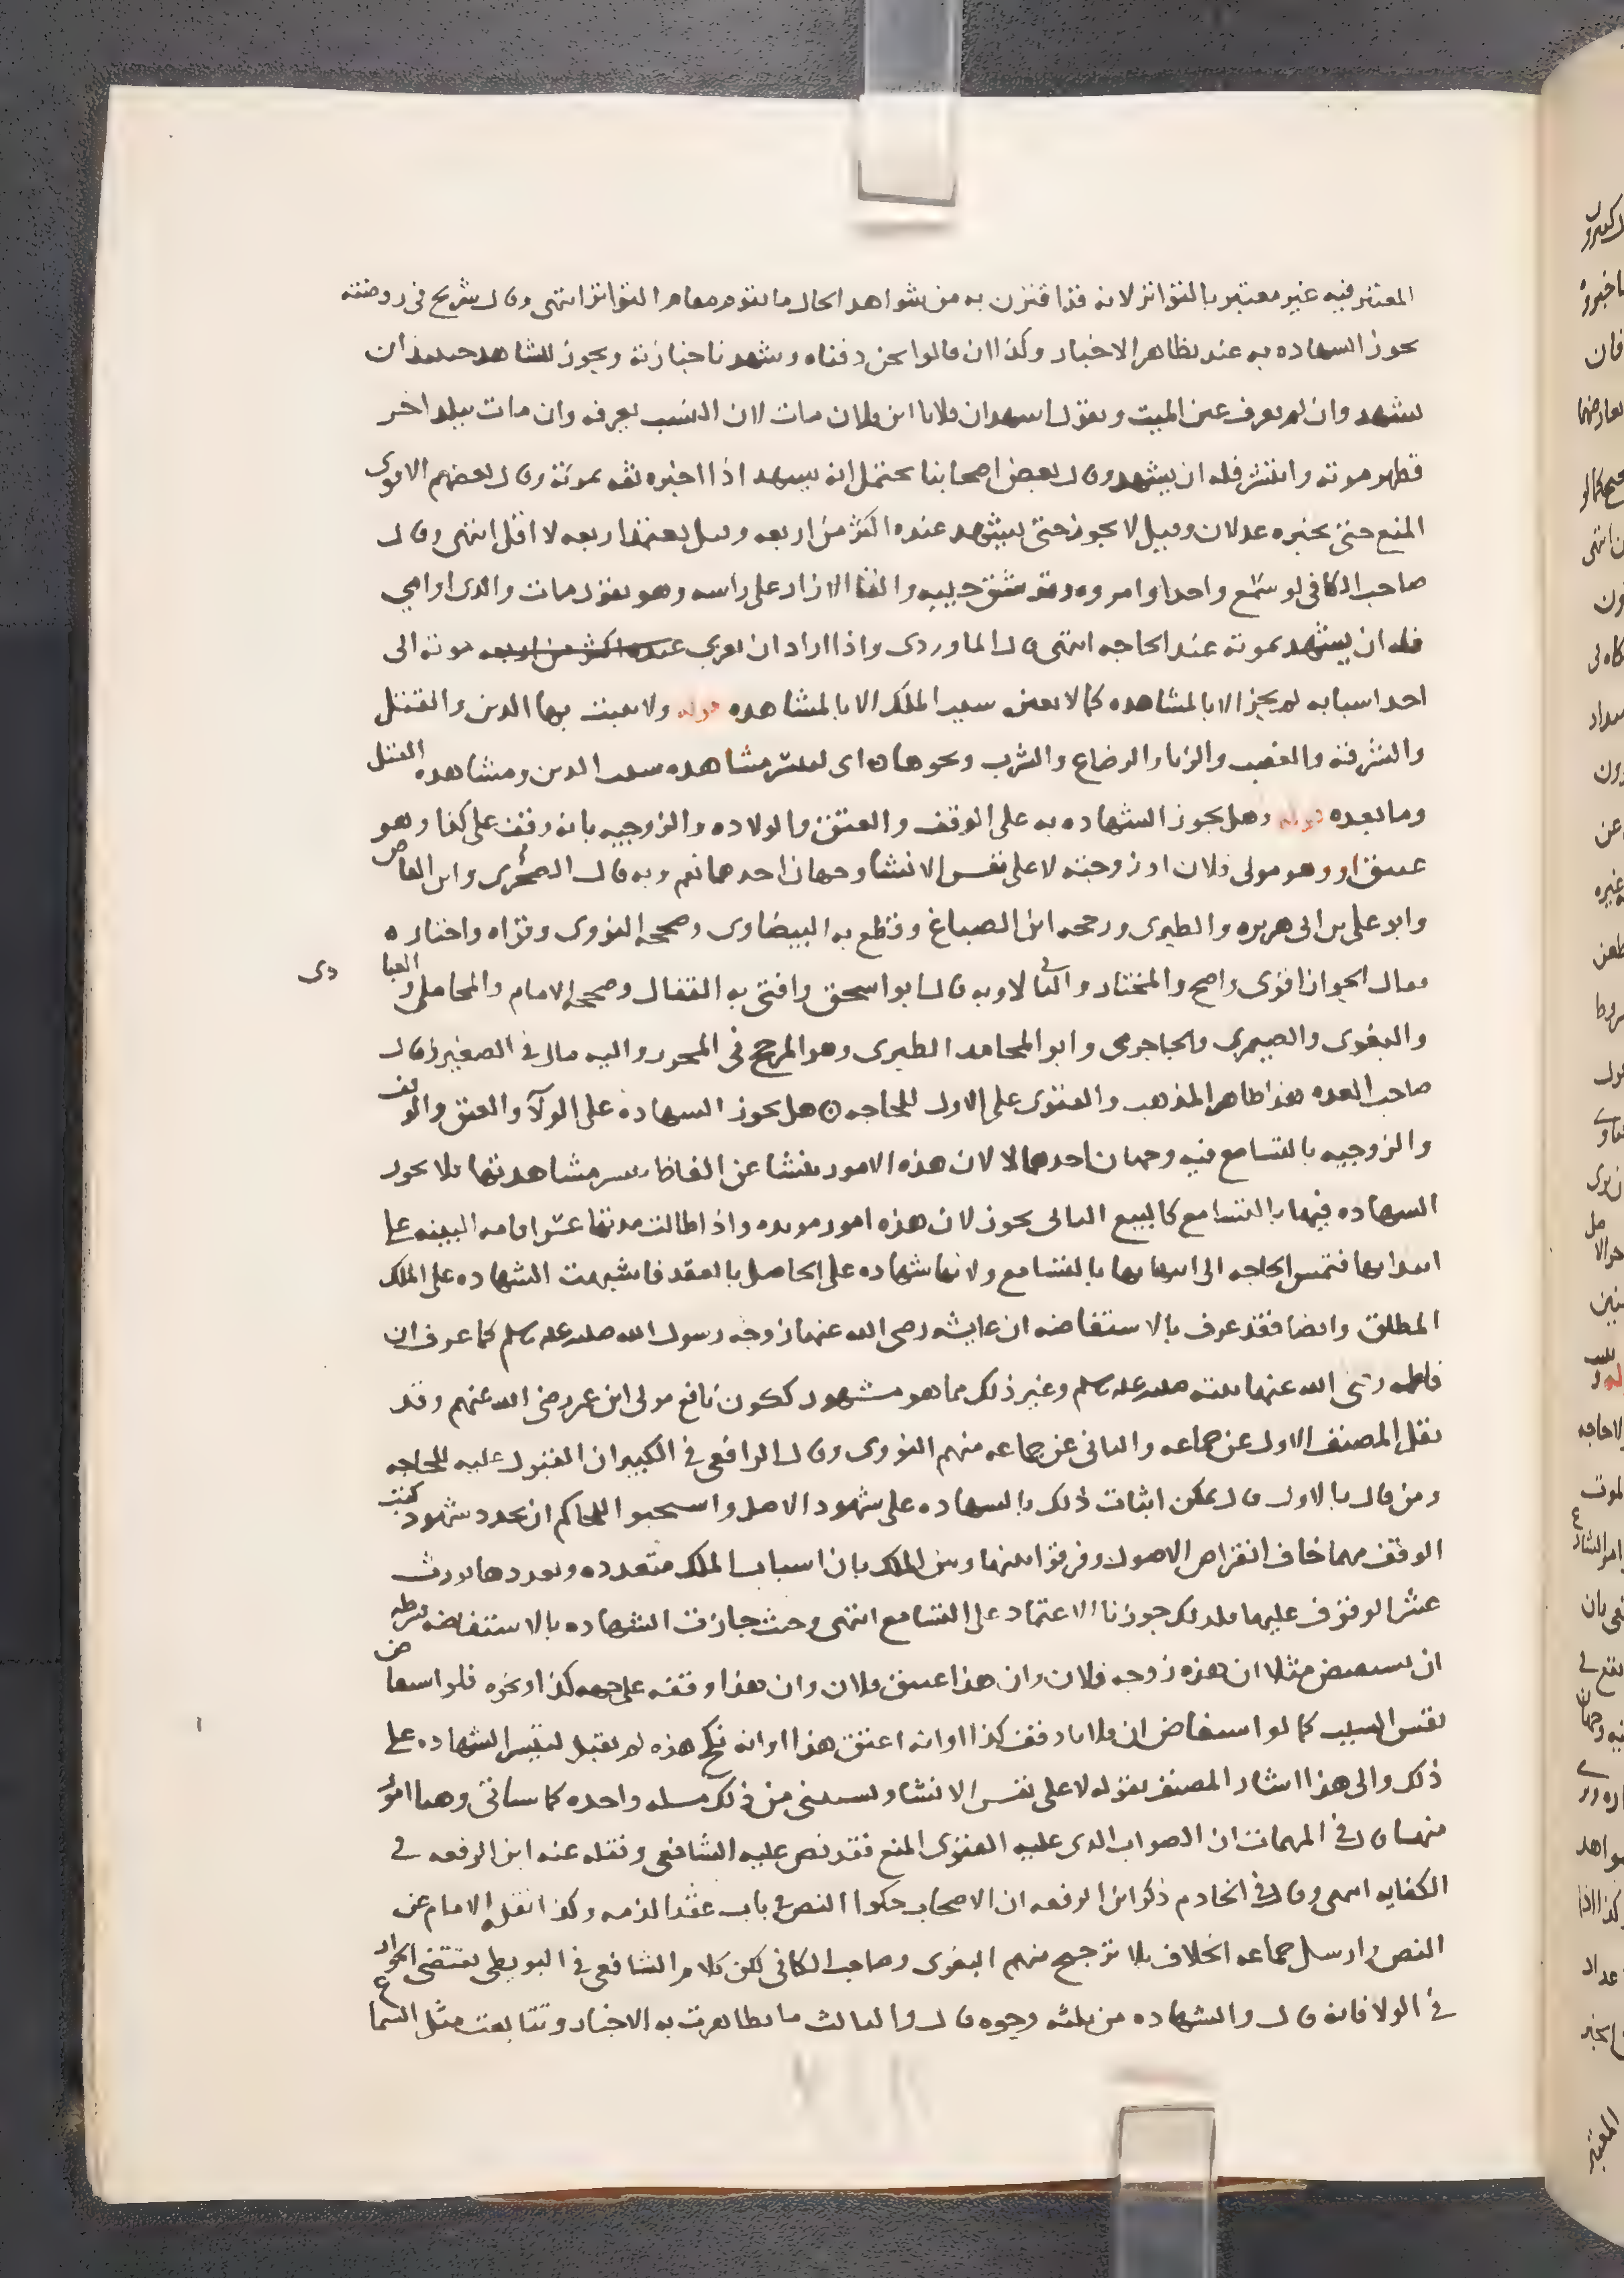 المعتبر فيه غير معتبر بالتواتر لانه قد اقترن به من شواهد الحال ما يقوم مقام التواتر انتهى وقال شريح في روضته
يجوز الشهاده به عند تظاهر الاخبار وكذا ان قالوا نحن دفناه وشهدنا جنازته ويجوز للشاهد حينئذ ان
يشهد وان لم يعرف عين الميت ويقول اشهد ان فلانا ابن فلان مات لان النسب يعرفه وان مات ببلد اخر
فظهر موته وانتشر فله ان يشهد وقال بعض اصحابنا يحتمل انه يشهد اذا اخبره ثقه بموته وقال بعضهم الاقوى
المنع حتى يخبره عدلان وقيل لا يجوز حتى يشهد عنده اكثر من اربعه وقيل يعتمد اربعه لا اقل انتهى وقال
صاحب الكافي لو سمع واحدا وامروه وقد شق جيبه والقا الازار على راسه وهو يقول مات والدي او امي
فله ان يشهد بموته عند الحاجه انتهى قال الماوردي واذا اراد ان يعزي موته الى
احد اسبابه لم يجز الا بالمشاهده كما لا يعين سبب الملك الا بالمشاهده قوله ولا يثبت بها الدين والقتل
والسرقه والغصب والزنا والرضاع والشرب ونحوها اي لتيسر مشاهده سبب الدين ومشاهده القتل
وما بعده قوله وهل يجوز الشهاده به على الوقف والعتق والولاده والزوجيه بانه وقف على كذا وهو
عتيق او وهو مولى فلان او زوجته لا على نفس الانشا وجهان احدهما نعم وبه قال الاصطخري وابن القاص
وابو علي بن ابي هريره والطبري ورجحه ابن الصباغ وقطع به البيضاوي وصححه النووي وقواه واختاره
وقال الجواز اقوى واصح والمختار والثاني لا وبه قال ابو اسحق وافتى به القفال وصححه الامام والمحاملي والعبادي
والبغوي والصيمري والجاجرمي وابو المحامد الطبري وهو المرجح في المحرر واليه مال في الصغير وقال
صاحب العده هذا ظاهر المذهب والفتوى على الاول للحاجه هل يجوز الشهاده على الولا والعتق والوقف
والزوجيه بالتسامع فيه وجهان احدهما لا لان هذه الامور تنشا عن الفاظ يتيسر مشاهدتها فلا يجوز
الشهاده فيها بالتسامع كالبيع الثاني يجوز لان هذه امور مويده واذا طالت مدتها عسر اقامه البينه على
ابتدايها فتمس الحاجه الى اثباتها بالتسامع ولانها شهاده على الحاصل بالعقد فاشبهت الشهاده على الملك
المطلق وايضا فقد عرف بالاستفاضه ان عايشه رضي الله عنها زوجه رسول الله صلى الله عليه وسلم كما عرف ان
فاطمه رضي الله عنها بنته صلى الله عليه وسلم وغير ذلك مما هو مشهور ككون نافع مولى ابن عمر رضي الله عنهم وقد
نقل المصنف الاول عن جماعه والثاني عن جماعه منهم النووي وقال الرافعي في الكبير ان الفتوى عليه للحاجه
ومن قال بالاول قال يمكن اثبات ذلك بالشهاده على شهود الاصل واستحبوا للحاكم ان يجدد شهود كتب
الوقف مهما خاف انقراض الاصول وفرقوا بينها وبين الملك بان اسباب الملك متعدده وتعددها يورث
عسر الوقوف عليها فلذلك جوزنا الاعتماد على التسامع انتهى وحيث جازت الشهاده بالاستفاضه فشرطه
ان يستفيض مثلا ان هذه زوجه فلان وان هذا عتيق فلان وان هذا وقفه على جهه كذا ونحوه فلو استفاض
نفس السبب كما لو استفاض ان فلانا وقف كذا او انه اعتق هذا او انه نكح هذه لم يقبل لتيسر الشهاده على
ذلك والى هذا اشار المصنف بقوله لا على نفس الانشا ويستثنى من ذلك مسله واحده كما سياتي وهنا امور
منها قال في المهمات ان الصواب الذي عليه الفتوى المنع فقد نص عليه الشافعي ونقله عنه ابن الرفعه في
الكفايه انتهى وقال في الخادم ذكر ابن الرفعه ان الاصحاب حكوا النص في باب عقد الذمه وكذا نقله الامام عن
النص وارسل جماعه الخلاف بلا ترجيح منهم البغوي وصاحب الكافي لكن كلام الشافعي في البويطي يقتضي الجواز
في الولا فانه قال والشهاده من ثلثه وجوه قال والثالث ما تظاهرت به الاخبار وتتابعت مثل السماع